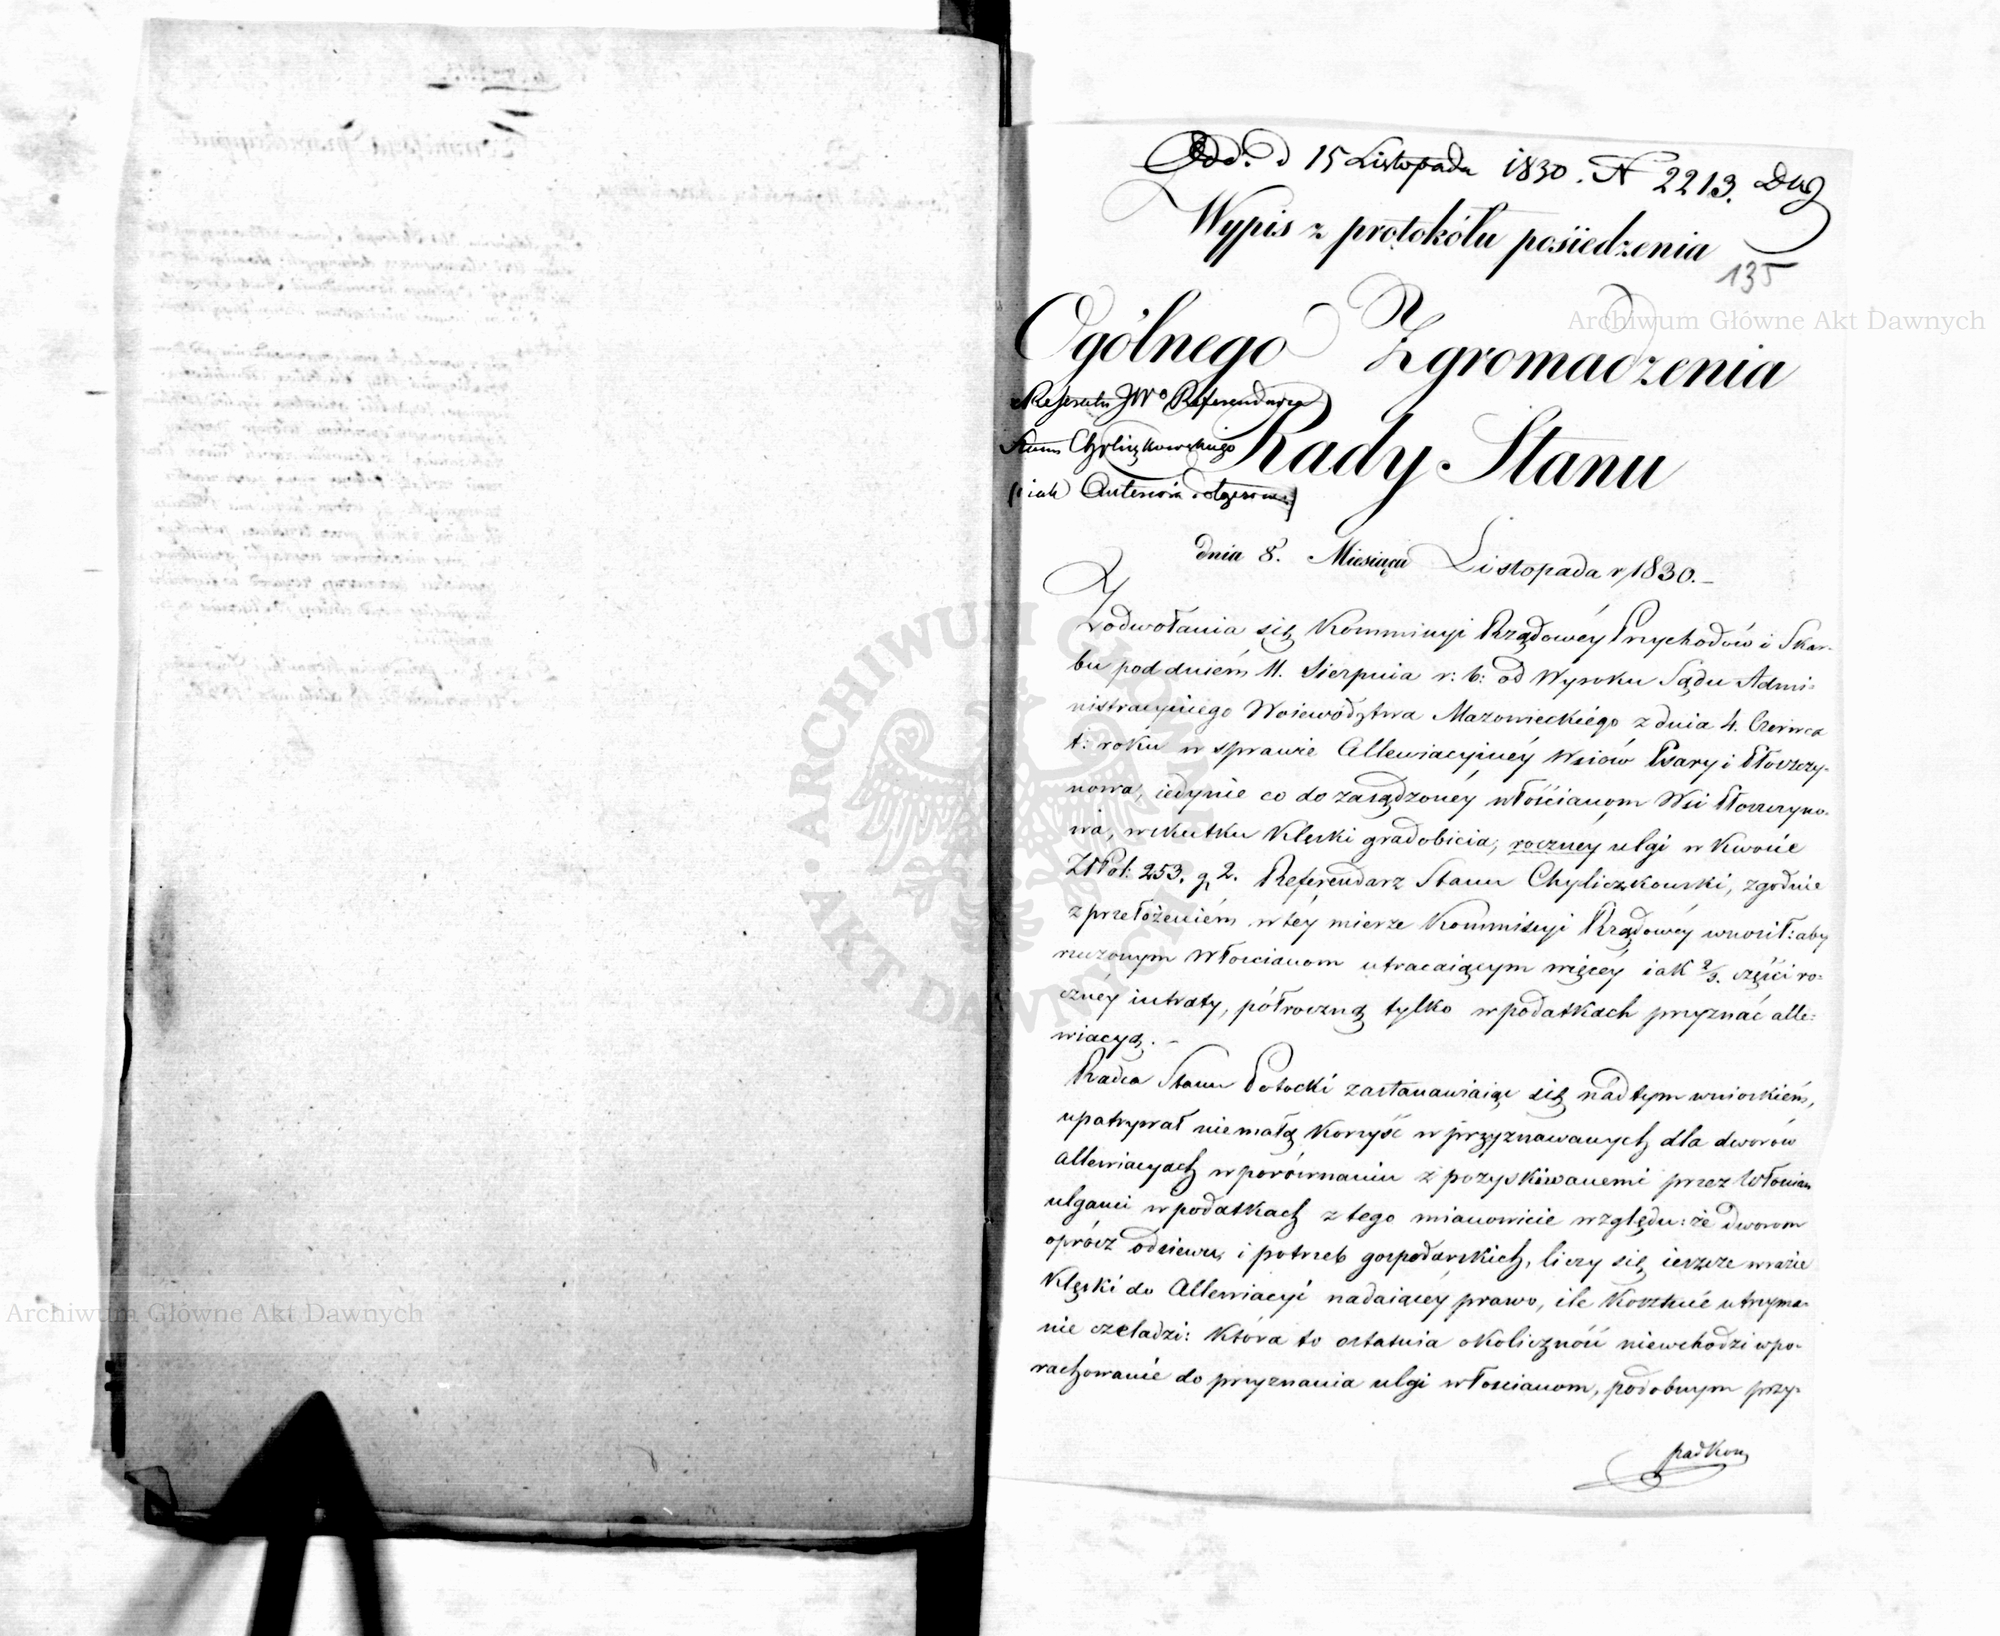 Odd. d 15 Listopada 1830. N 2213.
Wypis z protokółu posiedzenia
135
Ogólnego Zgromadzenia
Archiwum Główne Akt Dawnych
z Referatu JWo Referendarza
Stanu Chyliczkowskiego
Rady Stanu
dnia 8. Miesiąca Listopada r 1830.
Z odwołania się Kommissyi Rządowéy Przychodów i Skar-
bu pod dniém 11. Sierpnia r: b: od Wyroku Sądu Admi-
nistracyinego Woiewództwa Mazowieckiégo z dnia 4. Czerwca
t: roku w sprawie Allewiacyinéy Wsiów Psary i Płoszczy-
nowa, iedynie co do zasądzonéy włościanom Wsi Płoszczyno-
wa, w skutku Klęski gradobicia, rocznéy ulgi w Kwocie
ZłPol: 253. g. 2. Referendarz Stanu Chyliczkowski, zgodnie
z przełożeniém w téy mierze Kommissyi Rządowéy wnosił: aby
rzeczonym Włościanom utracaiącym więcéy iak 2/3. części ro-
cznéy intraty, półroczną tylko w podatkach przyznać alle-
wiacyą. -
Radca Stanu Potocki zastanawiaiąc się nad tym wnioskiém,
upatrywał niemałą Korzyść w przyznawanych dla dworów
allewiacyach w porównaniu z pozyskiwanemi przez Włościan
ulgami w podatkach z tego mianowicie względu: że dworom
oprócz odsiewu, i potrzeb gospodarskich, liczy się ieszcze w razie
Klęski do Allewiacyi nadaiącéy prawo, ile Kosztuie utrzyma-
nie czeladzi: Która to ostatnia okoliczność niewchodzi w po-
rachowanie do przyznania ulgi włościanom, podobnym przy-
padkom
ARCHIWUM GŁÓWNE AKT DAWNYCH
Archiwum Główne Akt Dawnych